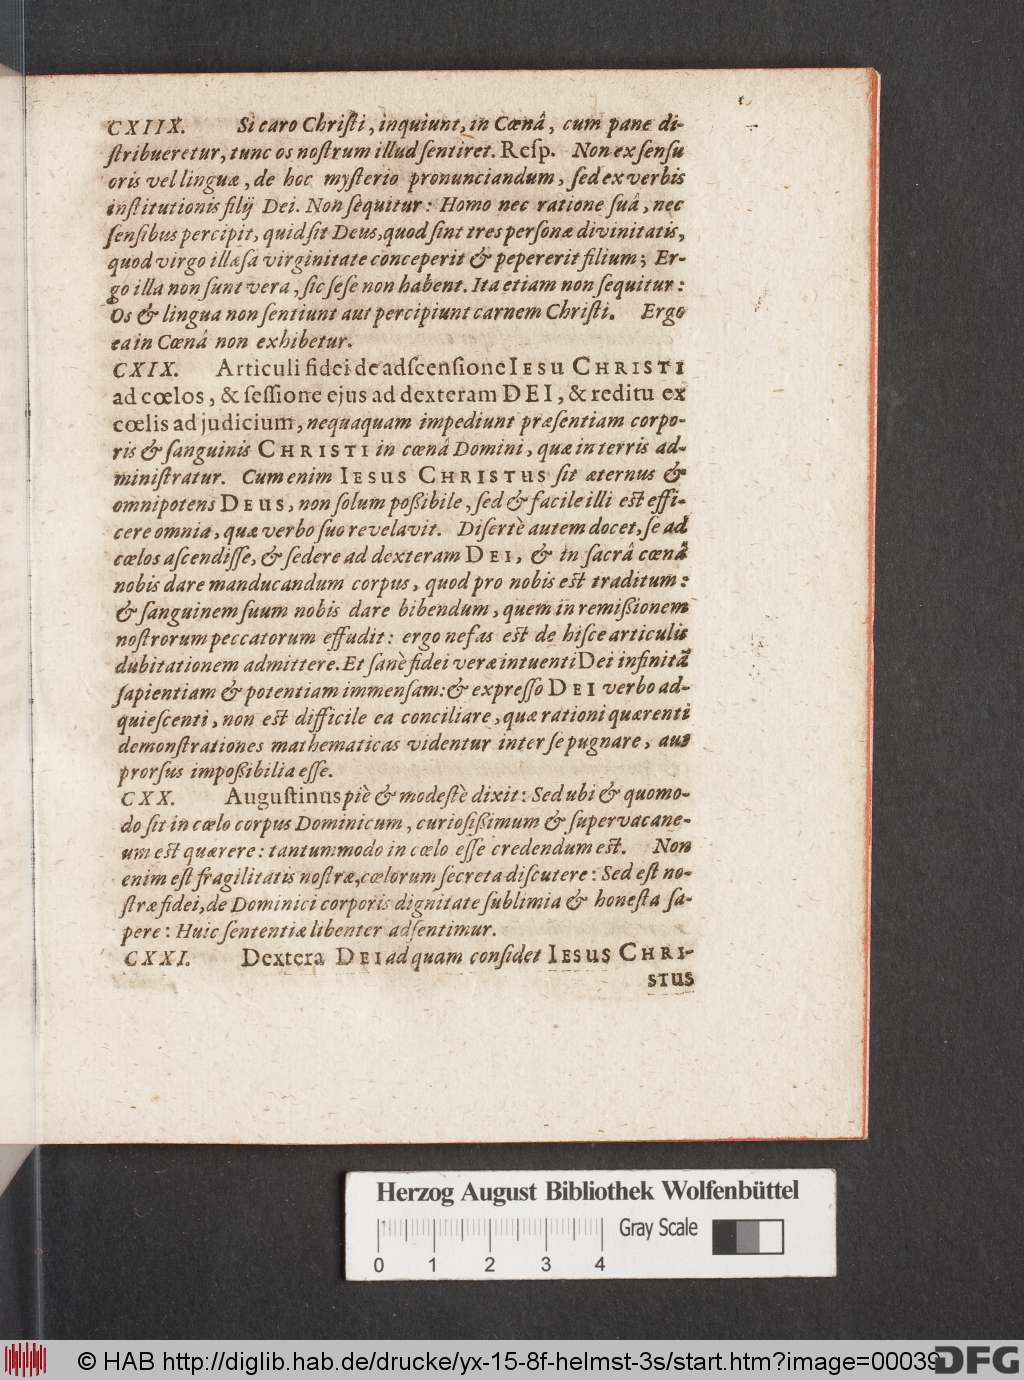 CXIIX. Si caro Chriſti, inquiunt, in Cœnâ, cum pane di-
ſtribueretur, tunc os noſtrum illud ſentiret. Reſp. Non ex ſenſu
oris vel linguæ, de hoc myſterio pronunciandum, ſed ex verbis
inſtitutionis filij Dei. Non ſequitur: Homo nec ratione ſuâ, nec
ſenſibus percipit, quid ſit Deus, quod ſint tres perſonæ divinitatis,
quod virgo illæſa virginitate conceperit & pepererit filium; Er-
go illa non ſunt vera, ſic ſeſe non habent. Ita etiam non ſequitur:
Os & lingua non ſentiunt aut percipiunt carnem Chriſti. Ergo
ea in Cœnâ non exhibetur.
CXIX. Articuli fidei de adſcenſione IESU CHRISTI
ad cœlos, & ſeſſione ejus ad dexteram DEI, & reditu ex
cœlis ad judicium, nequaquam impediunt præſentiam corpo-
ris & ſanguinis CHRISTI in cœnâ Domini, quæ in terris ad-
miniſtratur. Cum enim IESUS CHRISTUS ſit æternus &
omnipotens DEUS, non ſolum poßibile, ſed & facile illi eſt effi-
cere omnia, quæ verbo ſuo revelavit. Diſertè autem docet, ſe ad
cœlos aſcendiſſe, & ſedere ad dexteram DEI, & in ſacrâ cœnâ
nobis dare manducandum corpus, quod pro nobis eſt traditum:
& ſanguinem ſuum nobis dare bibendum, quem in remißionem
noſtrorum peccatorum effudit: ergo nefas eſt de hiſce articulis
dubitationem admittere. Et ſanè fidei veræ intuenti Dei infinitã
ſapientiam & potentiam immenſam: & expreſſo DEI verbo ad-
quieſcenti, non eſt difficile ea conciliare, quæ rationi quærenti
demonſtrationes mathematicas videntur inter ſe pugnare, aut
prorſus impoßibilia eſſe.
CXX. Auguſtinus piè & modeſtè dixit: Sed ubi & quomo-
do ſit in cœlo corpus Dominicum, curioſißimum & ſupervacane-
um eſt quærere: tantummodo in cœlo eſſe credendum eſt. Non
enim eſt fragilitatis noſtræ, cœlorum ſecreta diſcutere: Sed eſt no-
ſtræ fidei, de Dominici corporis dignitate ſublimia & honeſta ſa-
pere: Huic ſententiæ libenter adſentimur.
CXXI. Dextera DEI ad quam conſidet IESUS CHRI-
STUS
Herzog August Bibliothek Wolfenbüttel
Gray Scale
0 1 2 3 4
© HAB http://diglib.hab.de/drucke/yx-15-8f-helmst-3s/start.htm?image=00039
DFG